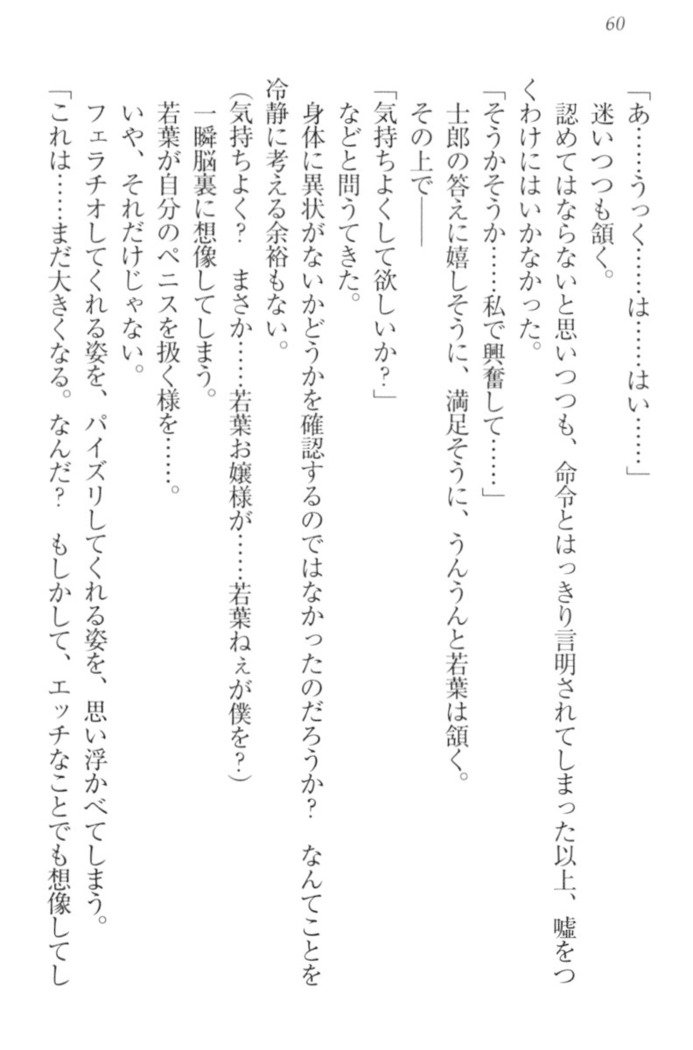 60
「あ……うっく……は……はい……」
迷いつつも頷く。
認めてはならないと思いつつも、命令とはっきり言明されてしまった以上、嘘をつ
くわけにはいかなかった。
「そうかそうか……私で興奮して……」
士郎の答えに嬉しそうに、満足そうに、うんうんと若葉は頷く。
その上で――
「気持ちよくして欲しいか？」
などと問うてきた。
身体に異状がないかどうかを確認するのではなかったのだろうか？　なんてことを
冷静に考える余裕もない。
（気持ちよく？　まさか……若葉お嬢様が……若葉ねぇが僕を？）
一瞬脳裏に想像してしまう。
若葉が自分のペニスを扱く様を……。
いや、それだけじゃない。
フェラチオしてくれる姿を、パイズリしてくれる姿を、思い浮かべてしまう。
「これは……まだ大きくなる。なんだ？　もしかして、エッチなことでも想像してし